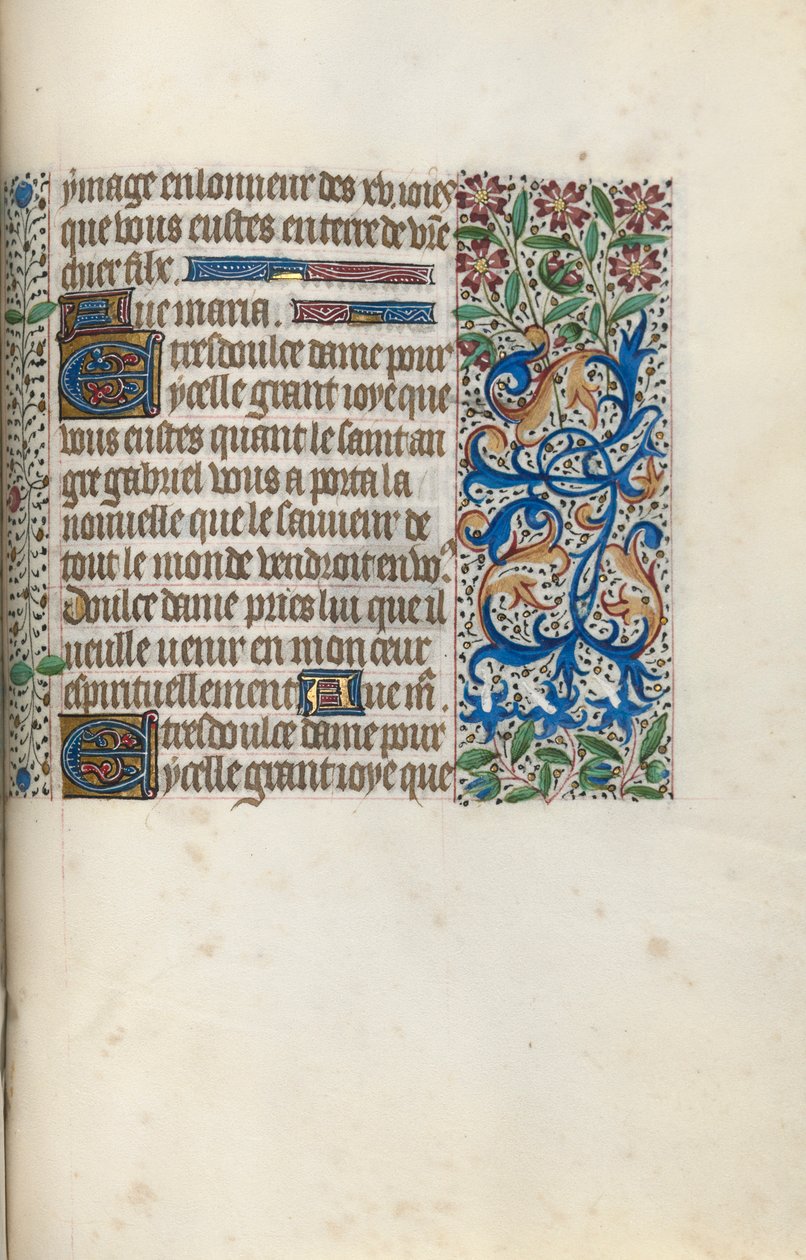 ymage en lonneur des xv. ioies
que vous eustes en terre de vr̄e
chier filx.
Aue maria.
E tresdoulce dame pour
ycelle grant ioye que
vous eustes quant le saint an
gre gabriel vous a porta la
nouuelle que le sauueur de
tout le monde vendroit en voꝰ.
Doulce dame pries lui que il
ueulle uenir en mon cœur
espirituellement Aue m̄.
E tresdoulce dame pour
ycelle grant ioye que